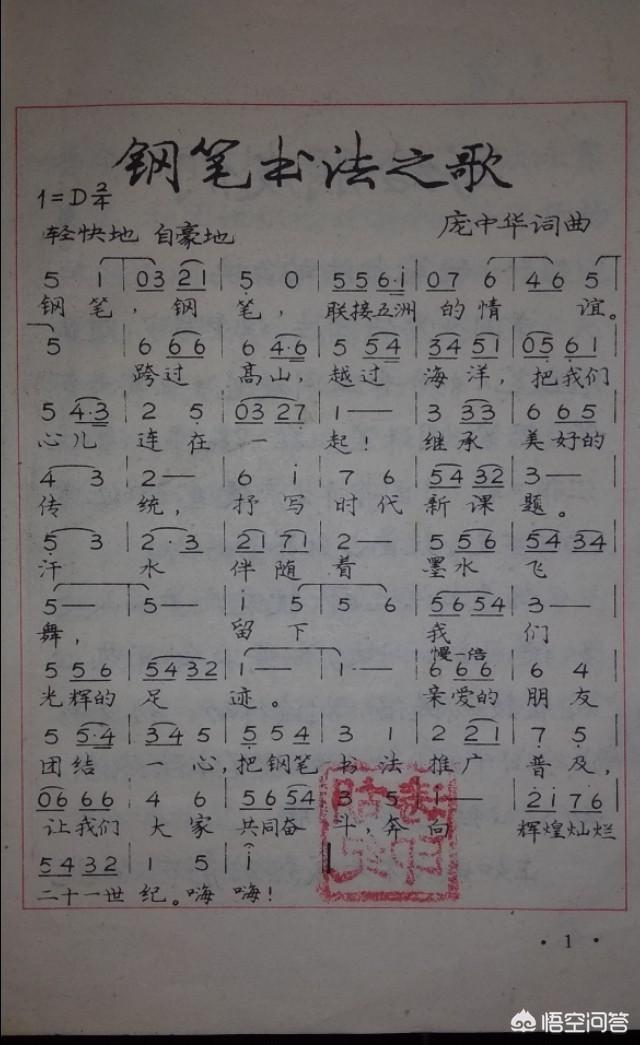 钢笔书法之歌
1=D 2/4
轻快地 自豪地 庞中华词曲
5 1 | 03 21 | 5 0 | 5 5 6·i | 07 6 | 46 5 |
钢笔，钢笔，联接五洲的情谊。
5 | 6 66 | 6 4·6 | 5 54 | 34 51 | 05 61 |
跨过高山，越过海洋，把我们
5 4·3 | 2 5 | 03 27 | 1— | 3 33 | 6 65 |
心儿连在一起！继承美好的
4 3 | 2— | 6 i | 7 6 | 54 32 | 3— |
传统，抒写时代新课题。
5 3 | 2·3 | 21 71 | 2— | 5 56 | 54 34 |
汗水伴随着墨水飞
5— | 5— | i 5 | 5 6 | 56 54 | 3— |
舞，留下我们
慢一倍
5 56 | 54 32 | 1— | 1·— | 6 66 | 6 4 |
光辉的足迹。亲爱的朋友
5 5·4 | 34 5 | 5 5 4 | 3 1 | 2 21 | 7 5 |
团结一心，把钢笔书法推广普及，
06 66 | 4 6 | 56 54 | 3 5 | i— | 2i 76 |
让我们大家共同奋斗，奔向辉煌灿烂
54 32 | 1 5 | i
二十一世纪。嗨嗨！
·1·
悟空问答